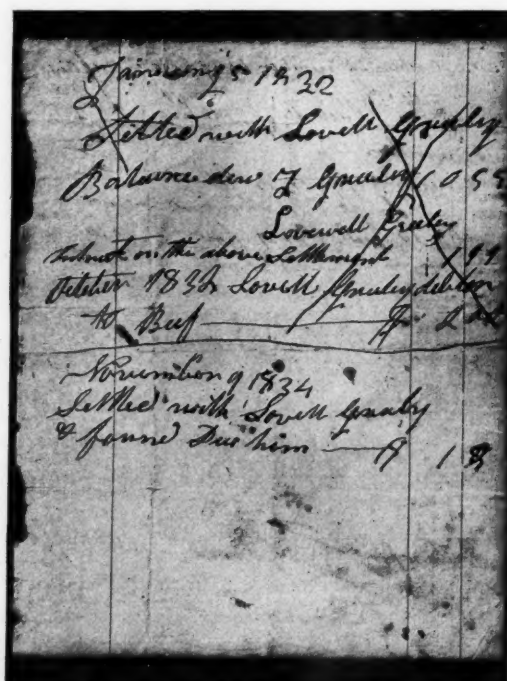 January 5 1832
Settled with Lovell Greeley
Balance due J Greeley 10 59
Lovewell Greeley
Interest on the above Settlement 1 99
1832 Lovell Greeley debtor
to Beef $ 2 22
November 9 1834
Settled with Lovell Greeley
& found Due him $ 1 8